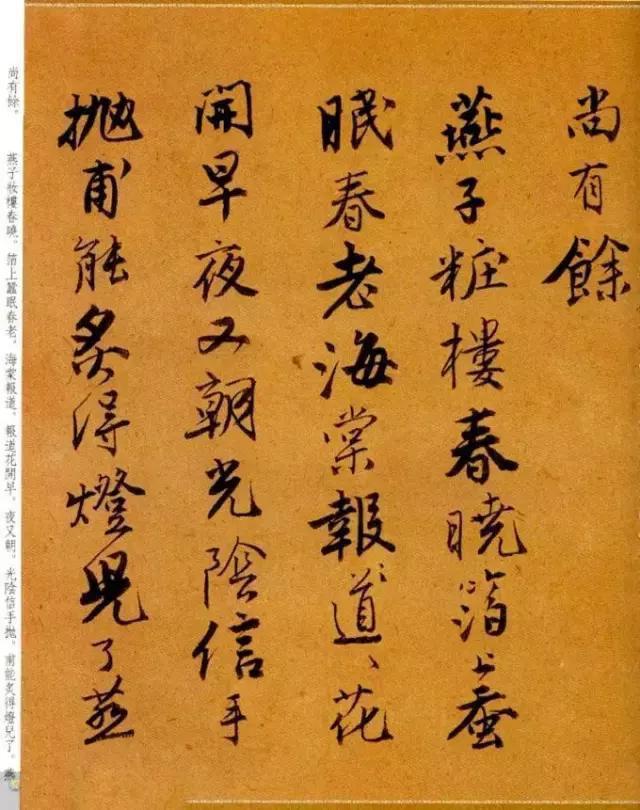 尚有餘
燕子粧樓春曉箔上蚕
眠春老海棠報道〻花
開早夜又朝光陰信手
抛甫能炙得燈兒了燕
尚有餘。 燕子妝樓春曉。箔上蠶眠春老。海棠報道。報道花開早。夜又朝。光陰信手抛。甫能炙得燈兒了。燕